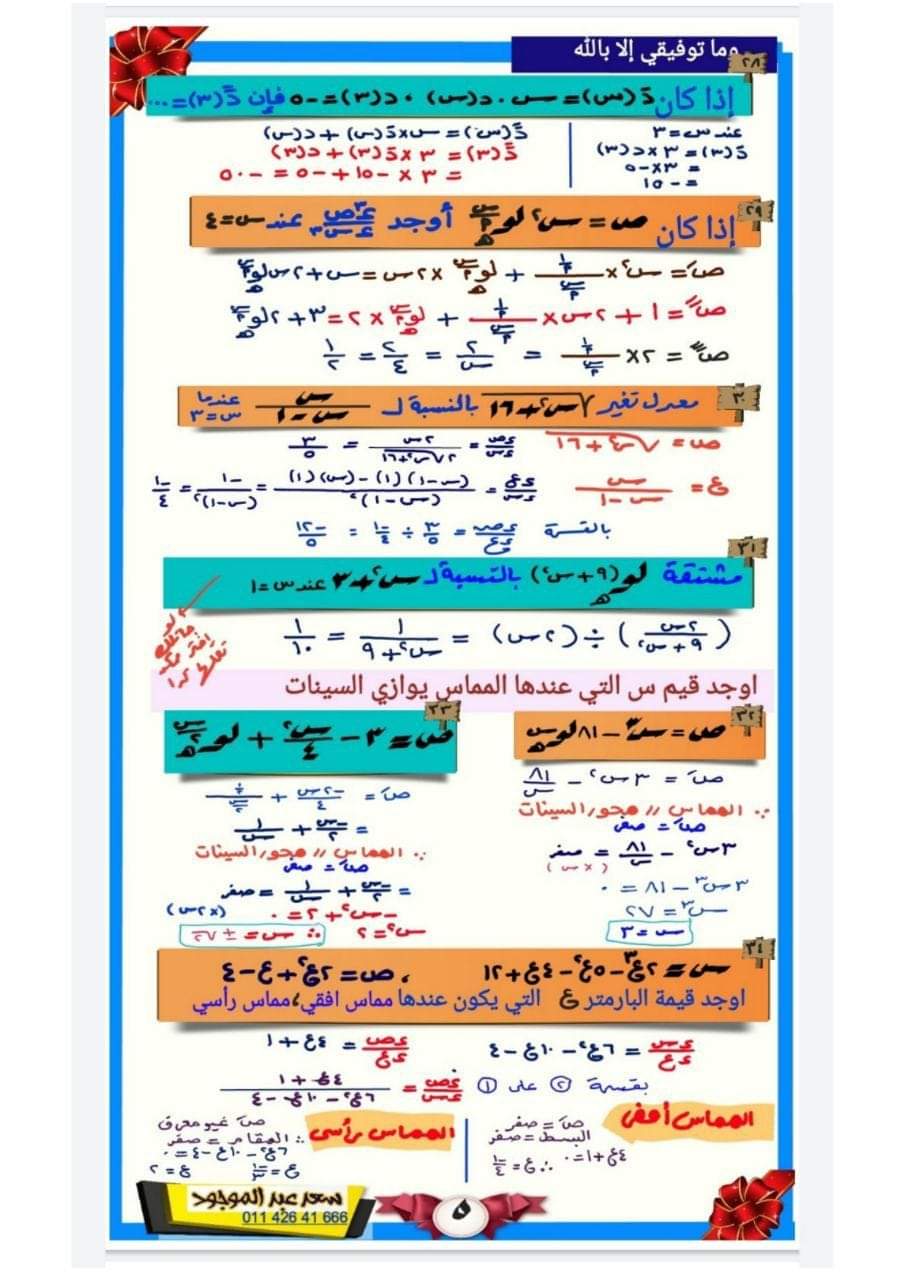 وما توفيقي إلا بالله
٢٨
إذا كان دَ(س) = س . د(س) ، د(٣) = -٥ فإن دً(٣) = ...
عند س = ٣
دَ(٣) = ٣ × د(٣)
= ٣ × -٥
= -١٥
دً(س) = س × دَ(س) + د(س)
دً(٣) = ٣ × دَ(٣) + د(٣)
= ٣ × -١٥ + -٥ = -٥٠
٢٩
إذا كان ص = س² لو_هـ س/٤ أوجد ء³ص/ءس³ عند س = ٤
٣٠
معدل تغير √(س² + ١٦) بالنسبة لـ س/(س - ١) عندما س = ٣
ص = √(س² + ١٦)
ءص/ءس = ٢س/(٢√(س² + ١٦)) = ٣/٥
ع = س/(س - ١)
ءع/ءس = ((س - ١)(١) - (س)(١))/(س - ١)² = -١/(س - ١)² = -١/٤
بالقسمة ءص/ءع = ٣/٥ ÷ -١/٤ = -١٢/٥
٣١
مشتقة لو_هـ (٩ + س²) بالنسبة لـ س² + ٣ عند س = ١
(٢س/(٩ + س²)) ÷ (٢س) = ١/(س² + ٩) = ١/١٠
اوجد قيم س التي عندها المماس يوازي السينات
٣٢
ص = س³ - ٨١ لو_هـ س
صَ = ٣س² - ٨١/س
∵ المماس // محور السينات
صَ = صفر
٣س² - ٨١/س = صفر
(× س)
٣س³ - ٨١ = ٠
س³ = ٢٧
س = ٣
٣٣
ص = ٣ - س²/٤ + لو_هـ س/٢
صَ = -٢س/٤ + (١/٢)/(س/٢)
= -س/٢ + ١/س
∵ المماس // محور السينات
صَ = صفر
= -س/٢ + ١/س = صفر
(× ٢س)
-س² + ٢ = ٠
س² = ٢ ∴ س = ±√٢
٣٤
س = ٢ع³ - ٥ع² - ٤ع + ١٢ ، ص = ٢ع² + ع - ٤
اوجد قيمة البارمتر ع التي يكون عندها مماس افقي ، مماس رأسي
ءس/ءع = ٦ع² - ١٠ع - ٤
ءص/ءع = ٤ع + ١
بقسمة ② على ①
ءص/ءس = (٤ع + ١)/(٦ع² - ١٠ع - ٤)
المماس أفقي
صَ = صفر
البسط = صفر
٤ع + ١ = ٠ ∴ ع = -١/٤
المماس رأسى
صَ غير معرف
∴ المقام = صفر
٦ع² - ١٠ع - ٤ = ٠
ع = -١/٣ ع = ٢
٥
سعد عبد الموجود
011 426 41 666